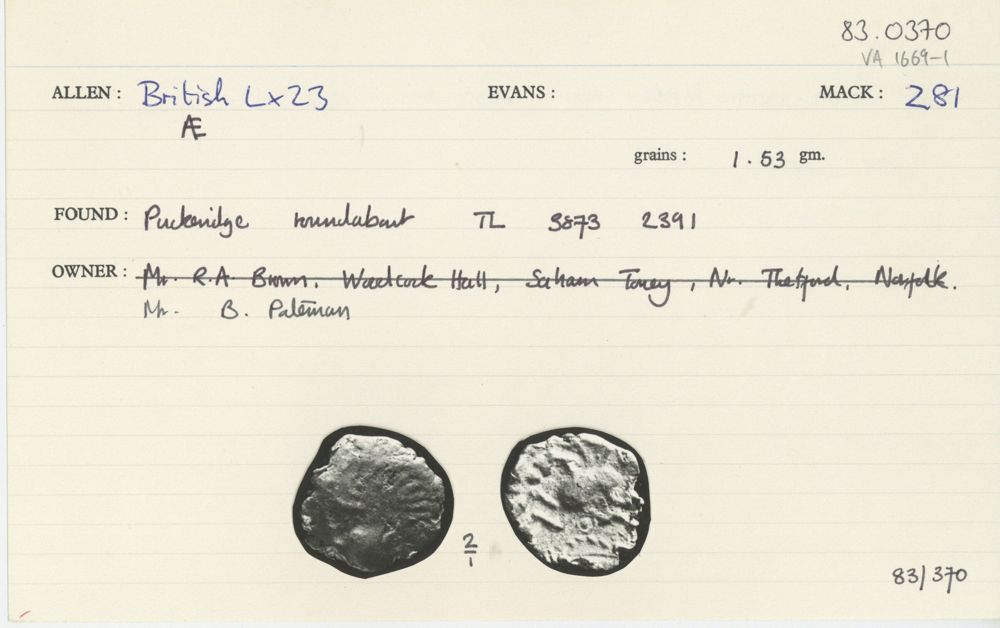 83.0370
VA 1669-1
ALLEN : British Lx23 EVANS : MACK : 281
Æ
grains : 1.53 gm.
FOUND : Puckeridge roundabout TL 3873 2391
OWNER : Mr. R.A Brown. Woodcock Hall, Saham Toney, Nr. Thetford, Norfolk.
Mr. B. Pateman
2
1
83/370